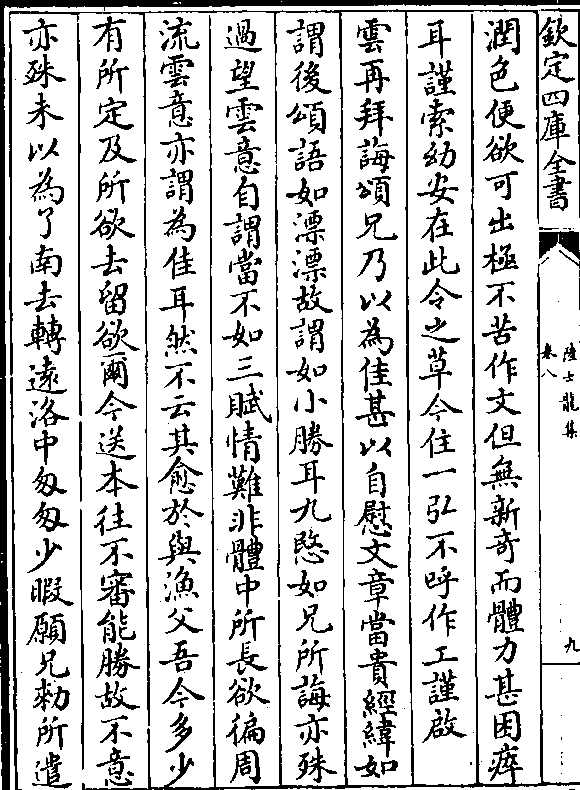 欽定四庫全書
陸士龍集
卷八
九
潤色便欲可出極不苦作文但無新奇而體力甚困瘁
耳謹索幼安在此令之草今住一弘不呼作工謹啟
雲再拜誨頌兄乃以為佳甚以自慰文章當貴經緯如
謂後頌語如漂漂故謂如小勝耳九愍如兄所誨亦殊
過望雲意自謂當不如三賦情難非體中所長欲徧周
流雲意亦謂為佳耳然不云其愈於與漁父吾今多少
有所定及所欲去留欲爾今送本往不審能勝故不意
亦殊未以為了南去轉遠洛中匆匆少暇願兄勑所遣